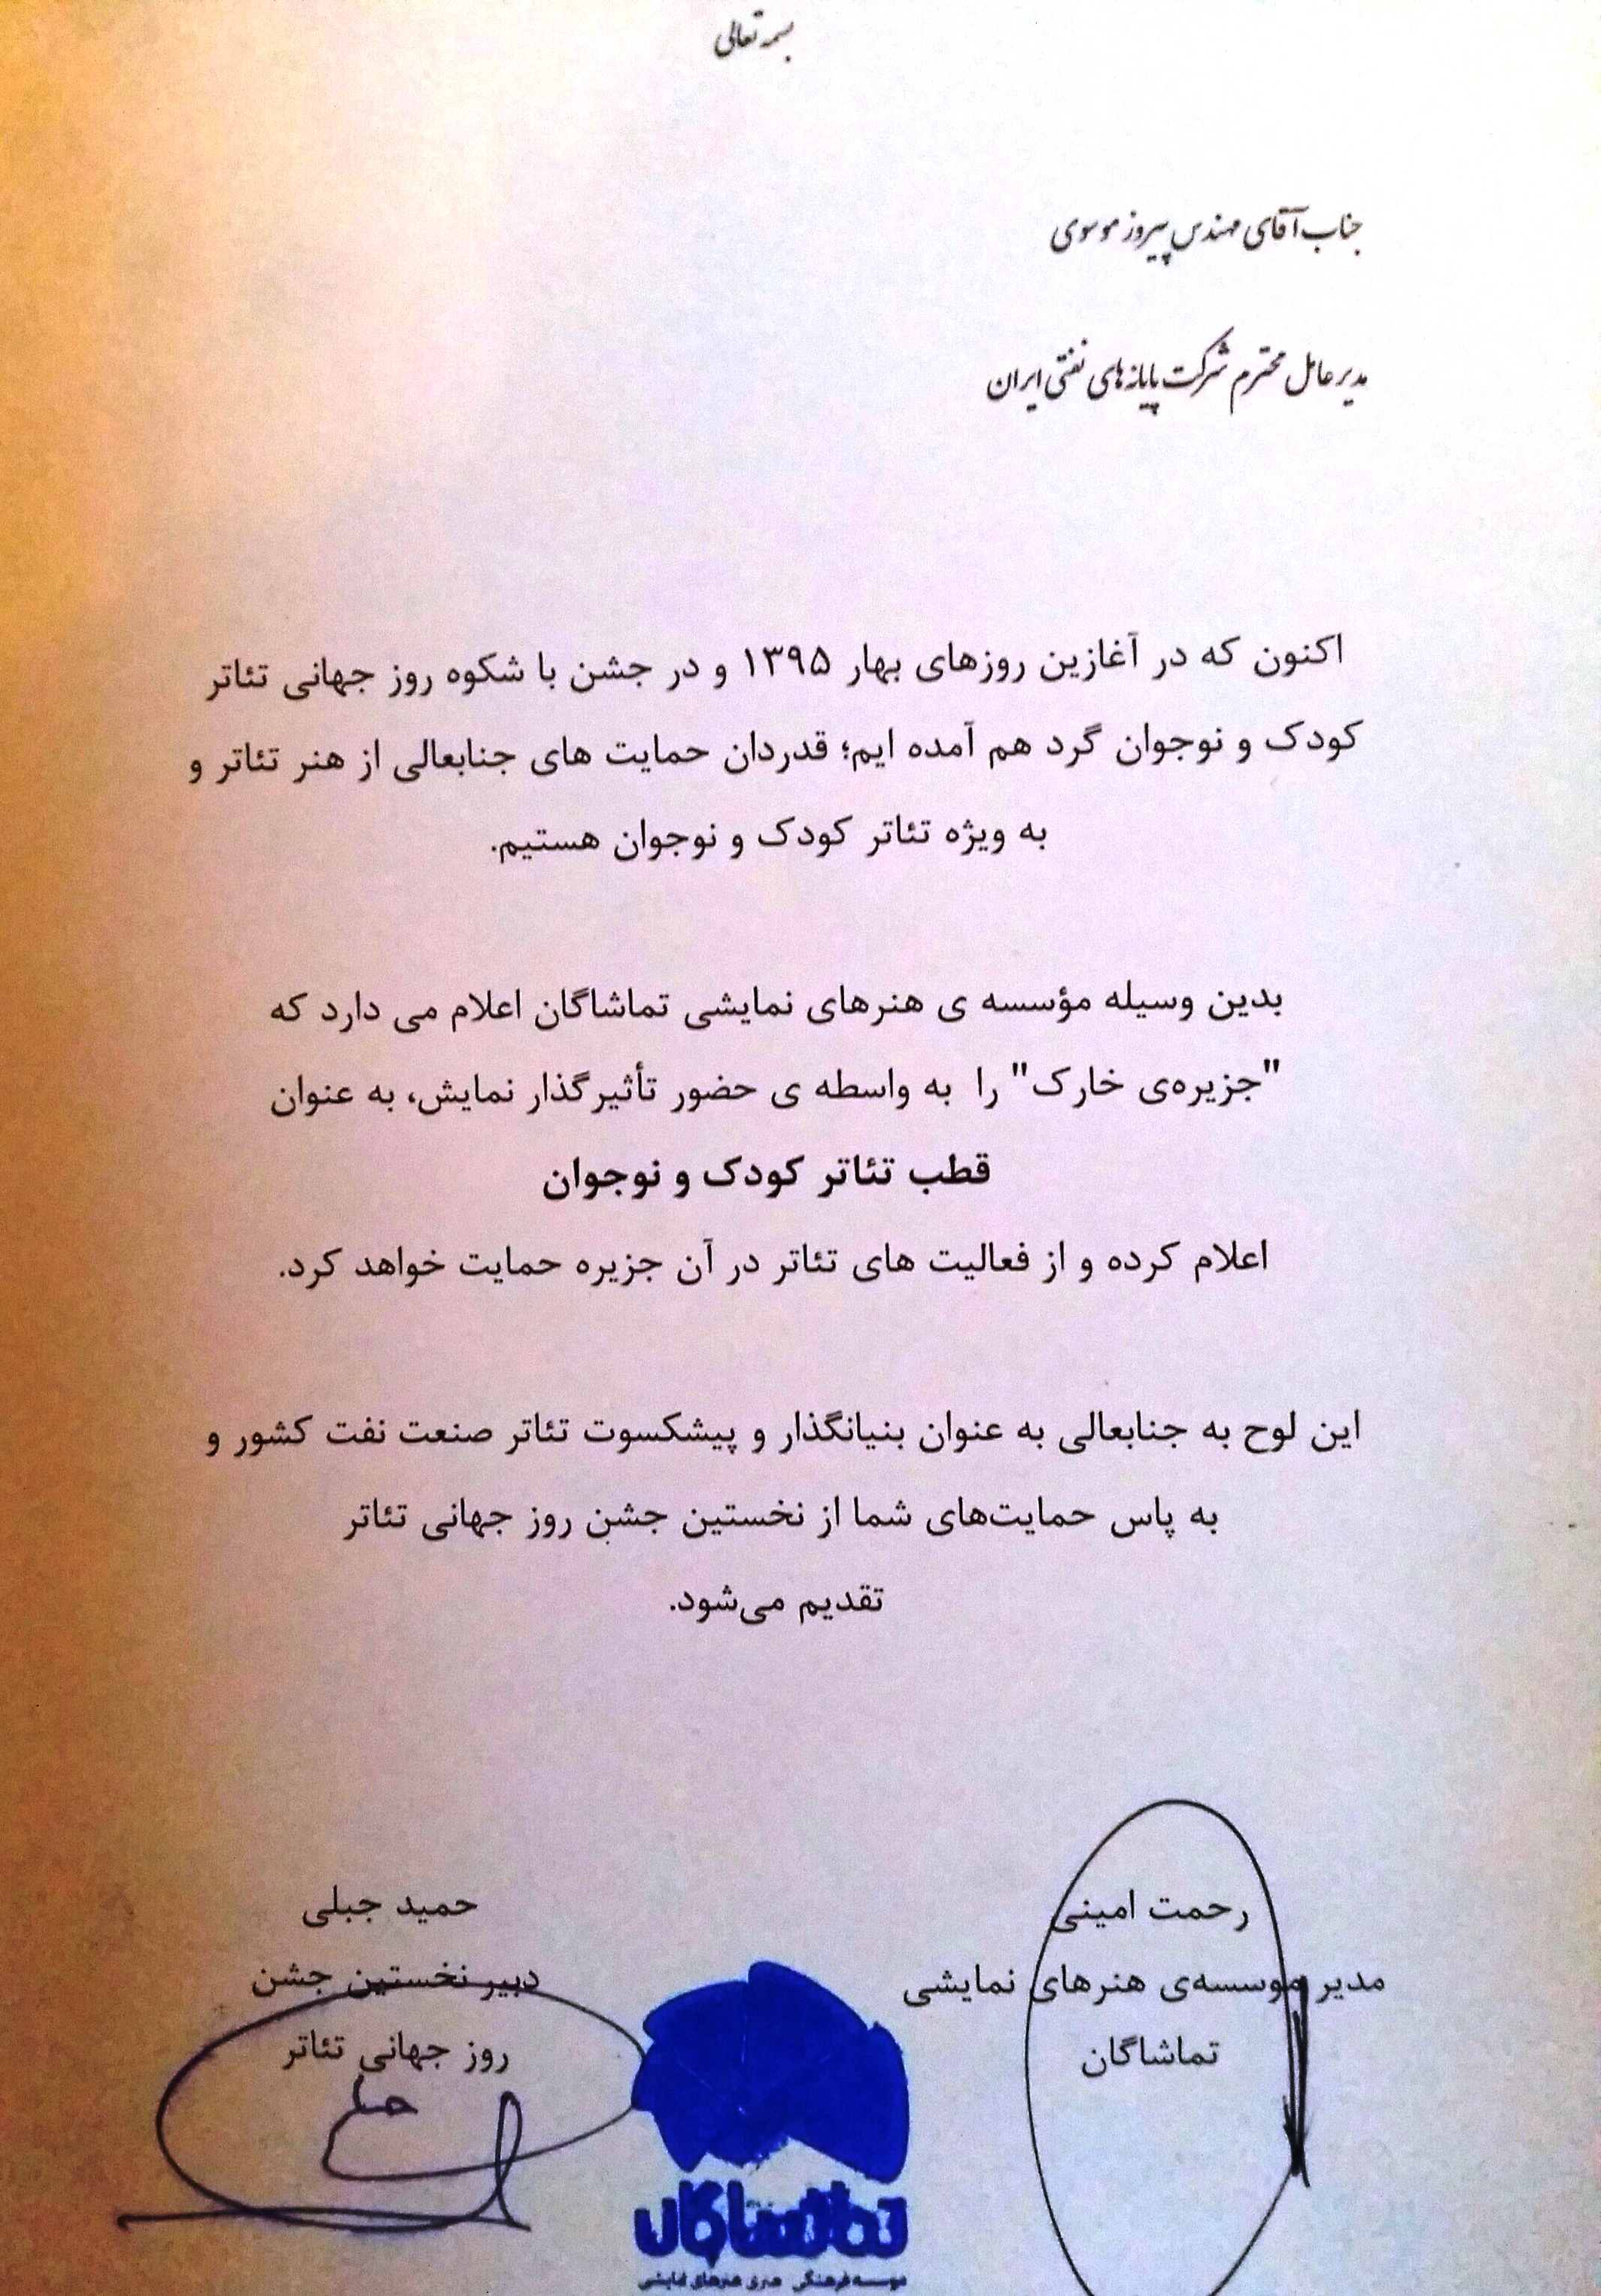 بسمه تعالی
جناب آقای مهندس پیروز موسوی
مدیر عامل محترم شرکت پایانه های نفتی ایران
اکنون که در آغازین روزهای بهار ۱۳۹۵ و در جشن با شکوه روز جهانی تئاتر
کودک و نوجوان گرد هم آمده ایم؛ قدردان حمایت های جنابعالی از هنر تئاتر و
به ویژه تئاتر کودک و نوجوان هستیم.
بدین وسیله مؤسسه ی هنرهای نمایشی تماشاگان اعلام می دارد که
"جزیره‌ی خارک" را به واسطه ی حضور تأثیرگذار نمایش، به عنوان
قطب تئاتر کودک و نوجوان
اعلام کرده و از فعالیت های تئاتر در آن جزیره حمایت خواهد کرد.
این لوح به جنابعالی به عنوان بنیانگذار و پیشکسوت تئاتر صنعت نفت کشور و
به پاس حمایت‌های شما از نخستین جشن روز جهانی تئاتر
تقدیم می‌شود.
رحمت امینی
مدیر موسسه‌ی هنرهای نمایشی
تماشاگان
حمید جبلی
دبیر نخستین جشن
روز جهانی تئاتر
تماشاگان
موسسه فرهنگی هنری هنرهای نمایشی